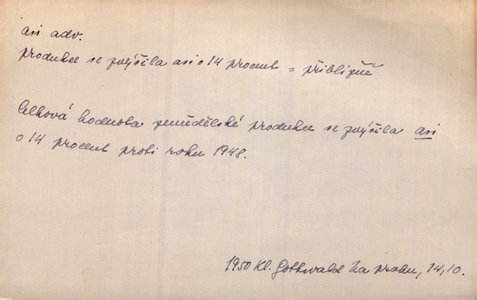 asi adv.
produkce se zvýšila asi o 14 procent = přibližně
Celková hodnota zemědělské produkce se zvýšila asi
o 14 procent proti roku 1948.
1950 Kl. Gottwald Za pračku, 14, 10.